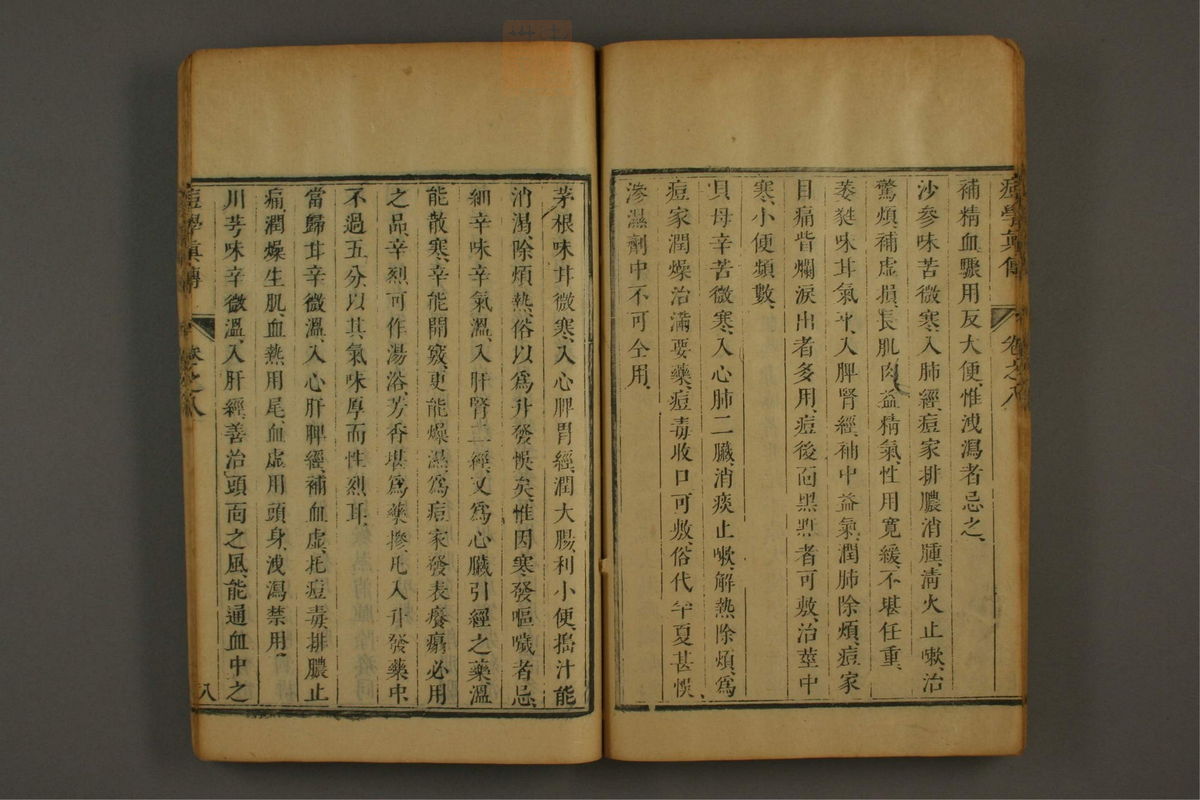 痘學眞傳 卷之八
補精血驟用反大便惟洩瀉者忌之
沙參味苦微寒入肺經痘家排膿消腫淸火止嗽治
驚煩補虛損長肌肉益精氣性用寬緩不堪任重
萎蕤味甘氣平入脾腎經補中益氣潤肺除煩痘家
目痛眥爛淚出者多用痘後面黑䵟者可敷治莖中
寒小便頻數
貝母辛苦微寒入心肺二臟消痰止嗽解熱除煩爲
痘家潤燥治滿要藥痘毒收口可敷俗代半夏甚悞
滲濕劑中不可仝用
茅根味甘微寒入心脾胃經潤大腸利小便搗汁能
消渴除煩熱俗以爲升發悞矣惟因寒發嘔噦者忌
細辛味辛氣溫入肝腎二經又爲心臟引經之藥溫
能散寒辛能開竅更能燥濕爲痘家發表癢瘍必用
之品辛烈可作湯浴芳香堪爲藥摻凡入升發藥中
不過五分以其氣味厚而性烈耳
當歸甘辛微溫入心肝脾經補血虛托痘毒排膿止
痛潤燥生肌血熱用尾血虛用頭身洩瀉禁用
川芎味辛微溫入肝經善治頭面之風能通血中之
痘學眞傳 卷之八 八